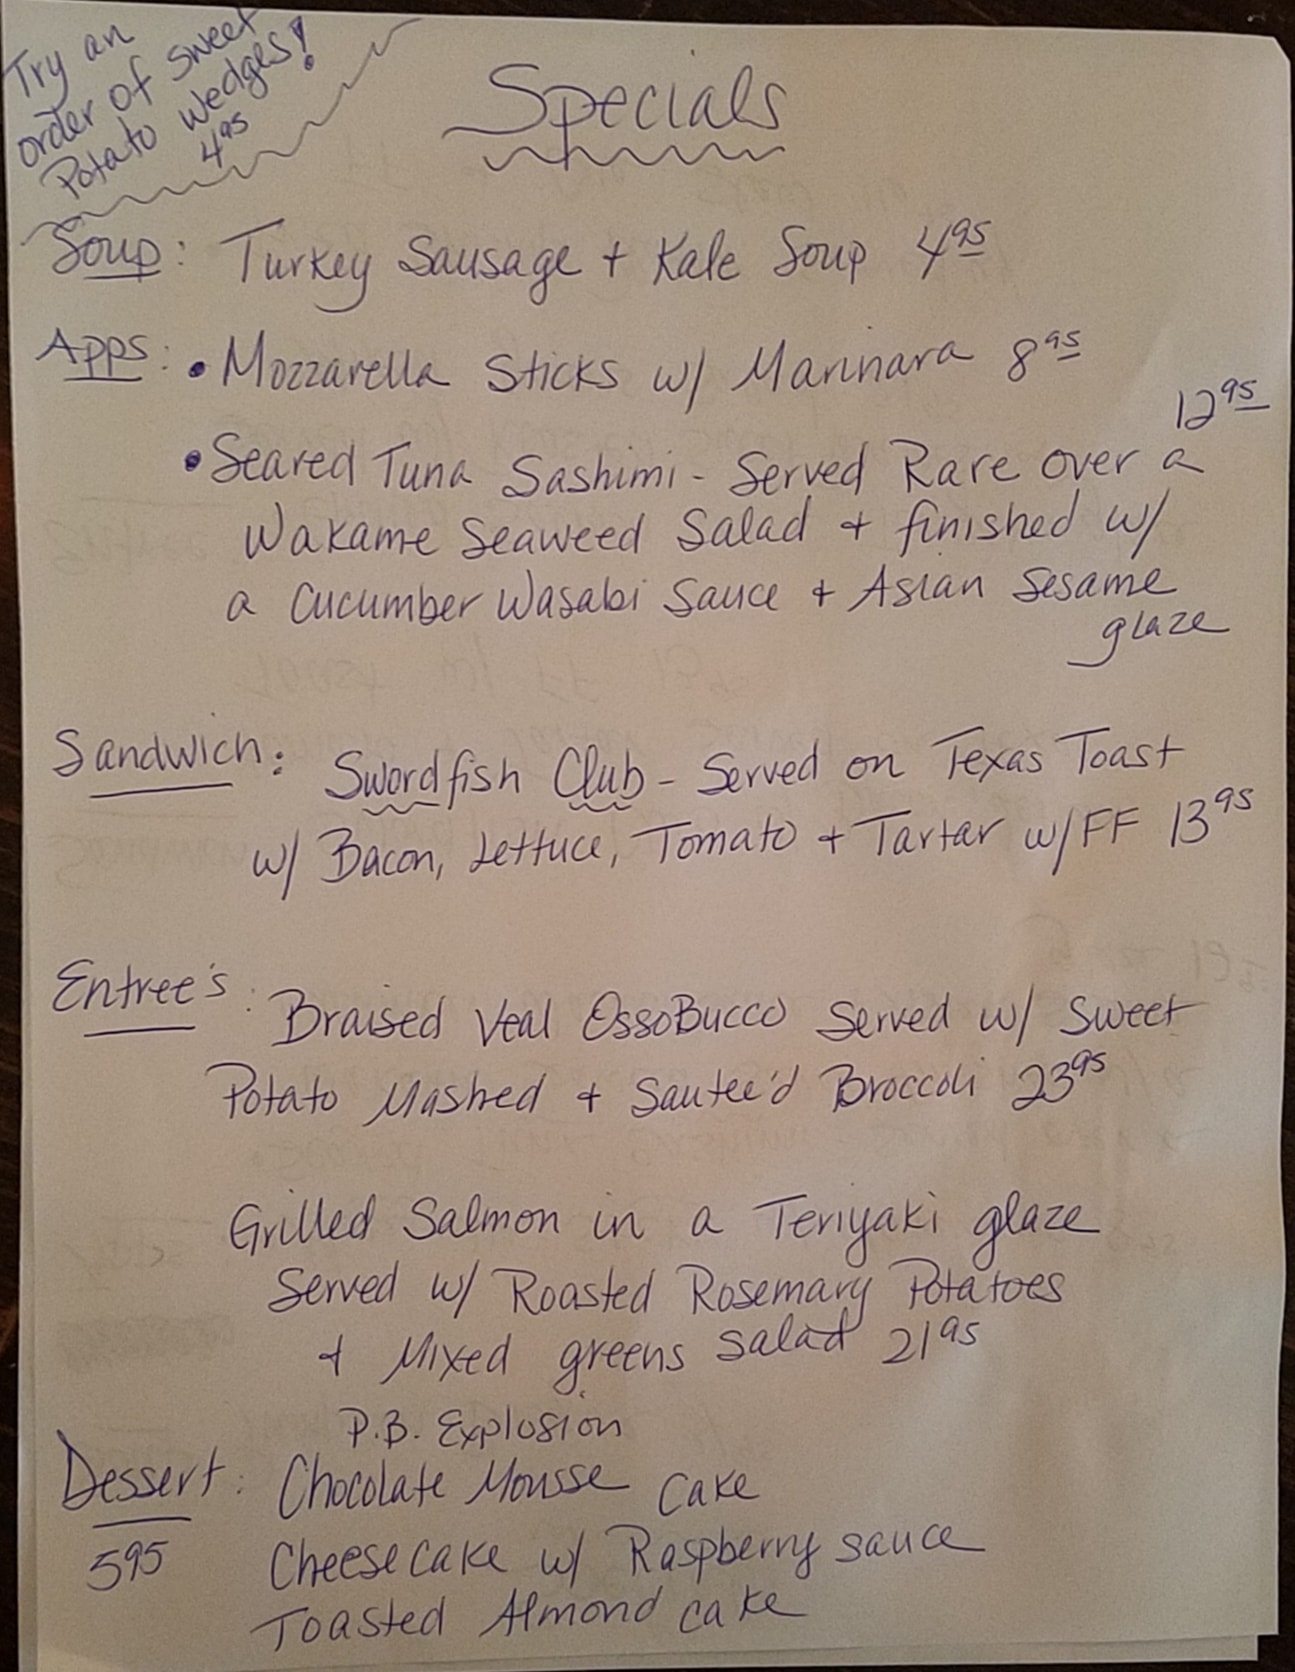 Try an
order of sweet
Potato Wedges!
4 95
Specials
Soup: Turkey Sausage + Kale Soup 4 95
Apps: • Mozzarella Sticks w/ Marinara 8 95
12 95
• Seared Tuna Sashimi - Served Rare over a
Wakame Seaweed Salad + finished w/
a Cucumber Wasabi Sauce + Asian Sesame
glaze
Sandwich: Swordfish Club - Served on Texas Toast
w/ Bacon, Lettuce, Tomato + Tartar w/ FF 13 95
Entree's: Braised Veal OssoBucco Served w/ Sweet
Potato Mashed + Sautee'd Broccoli 23 95
Grilled Salmon in a Teriyaki glaze
Served w/ Roasted Rosemary Potatoes
+ Mixed greens salad 21 95
P.B. Explosion
Dessert: Chocolate Mousse Cake
5 95 Cheesecake w/ Raspberry sauce
Toasted Almond cake